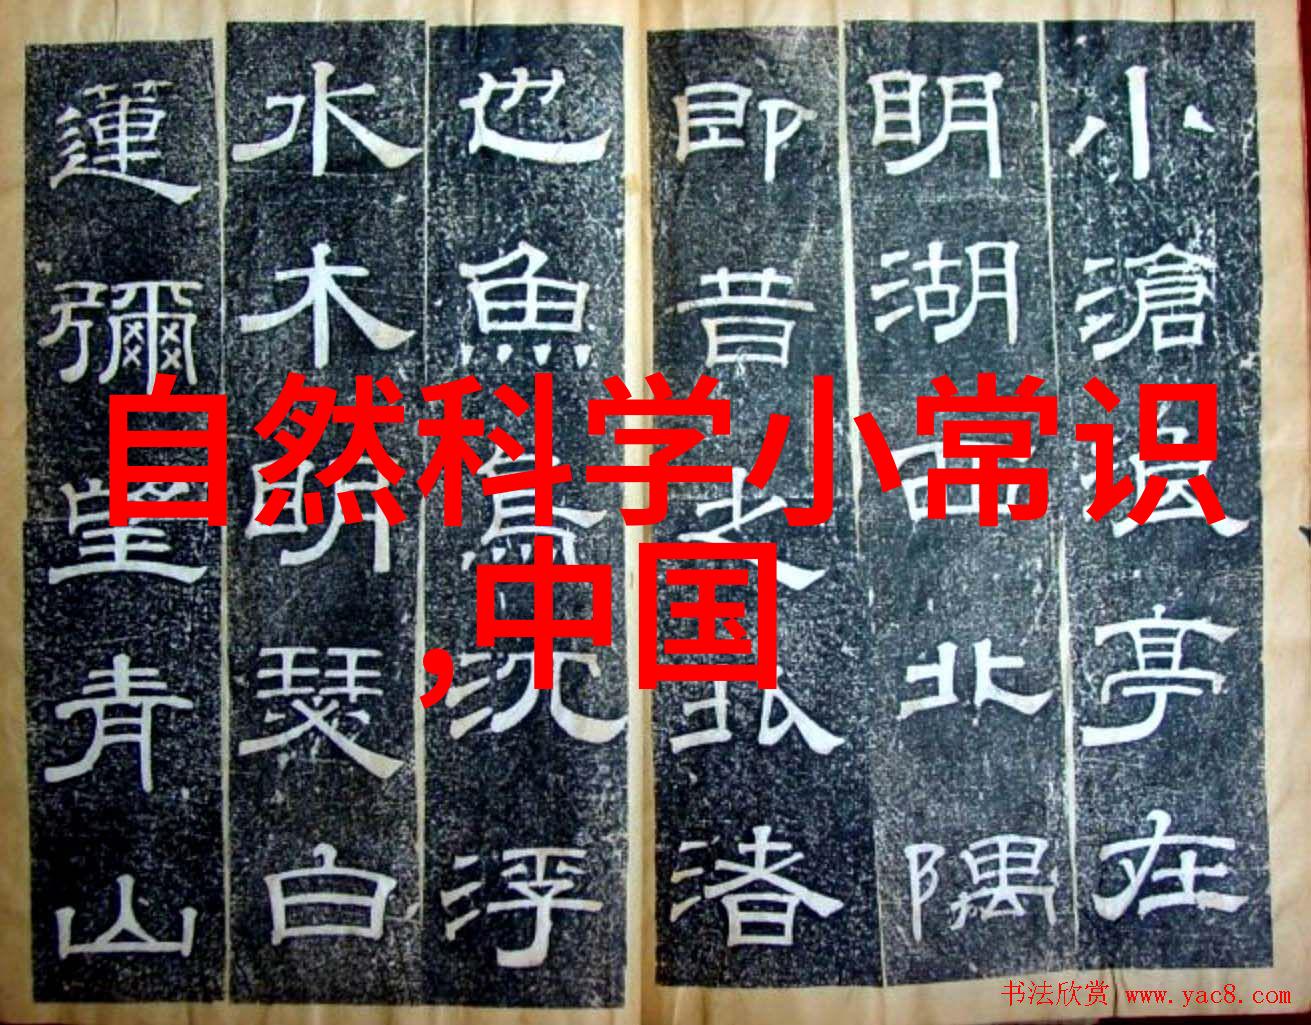 小滄浪亭在
明湖西北隅
即昔之北渚
也魚鳥沈浮
水木明瑟白
蓮彌望青山
自然科学小常识
,中国
书法欣赏 www.yac8.com